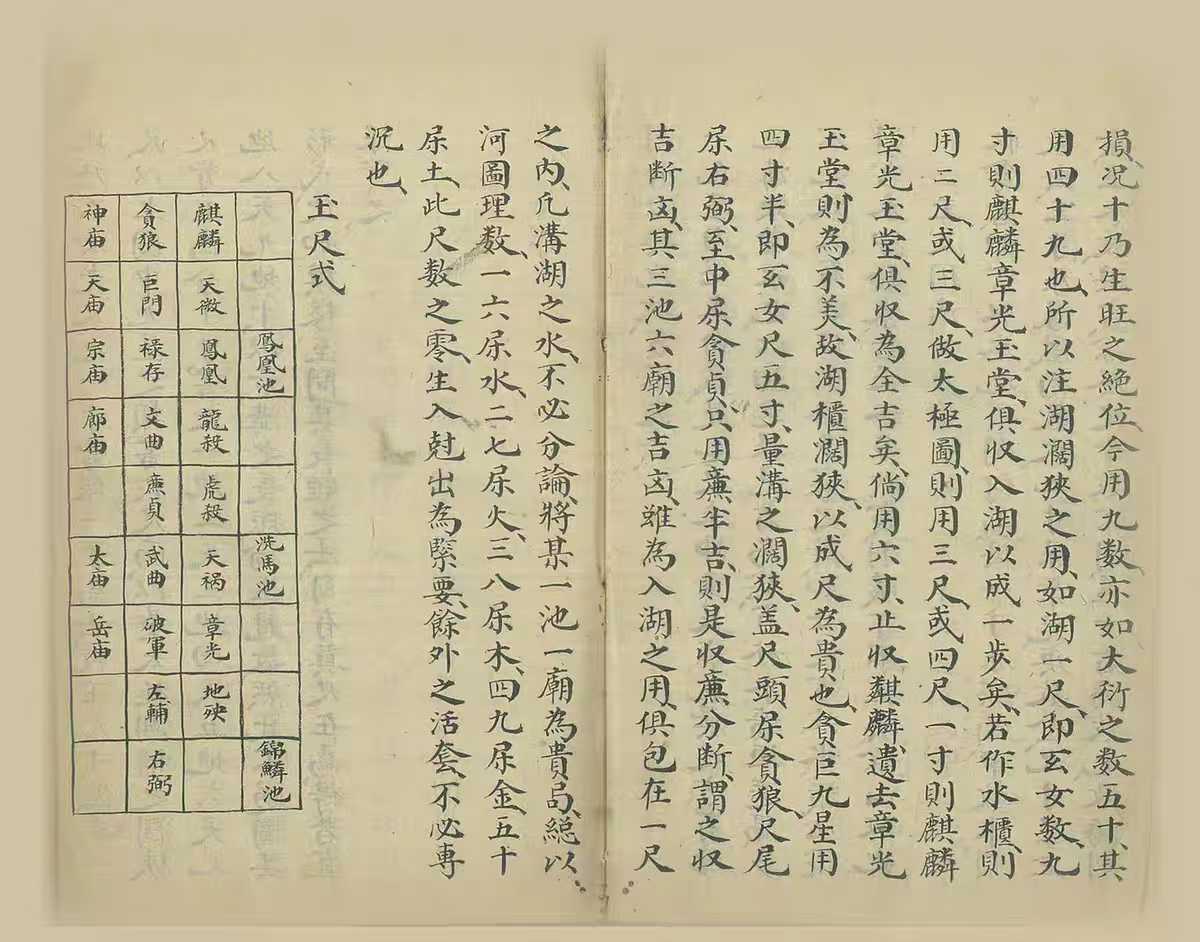 損、况十乃生旺之絶位、今用九数、亦如大衍之数五十、其
用四十九也、所以注湖濶狹之用、如湖一尺、即玄女数、九
寸則麒麟章光玉堂、俱収入湖以成一步矣、若作水櫃、則
用二尺、或三尺、做太極圖、則用三尺、或四尺、一寸則麒麟
章光玉堂、俱収為全吉矣、倘用六寸、止收麒麟、遺去章光
玉堂則為不美、故湖櫃濶狹、以成尺為貴也、貪巨九星用
四寸半、即玄女尺五寸、量溝之濶狹、盖尺頭屎貪狼、尺尾
屎右弼、至中屎貪貞、只用廉、半吉、則是収廉、分断、謂之収
吉断凶、其三池六廟之吉凶、雖為入湖之用、俱包在一尺
之內、凡溝湖之水、不必分論、將某一池一廟為貴局、総以
河圖理数、一六屎水、二七屎火、三八屎木、四九屎金、五十
屎土、此尺数之零、生入尅出為緊要、餘外之活套、不必専
沉也、
玉尺式
鳳凰池
洗馬池
錦鱗池
麒麟
天微
鳳凰
龍殺
虎殺
天禍
章光
地殃
貪狼
巨門
禄存
文曲
廉貞
武曲
破軍
左輔
右弼
神庙
天庙
宗庙
廊庙
太庙
岳庙